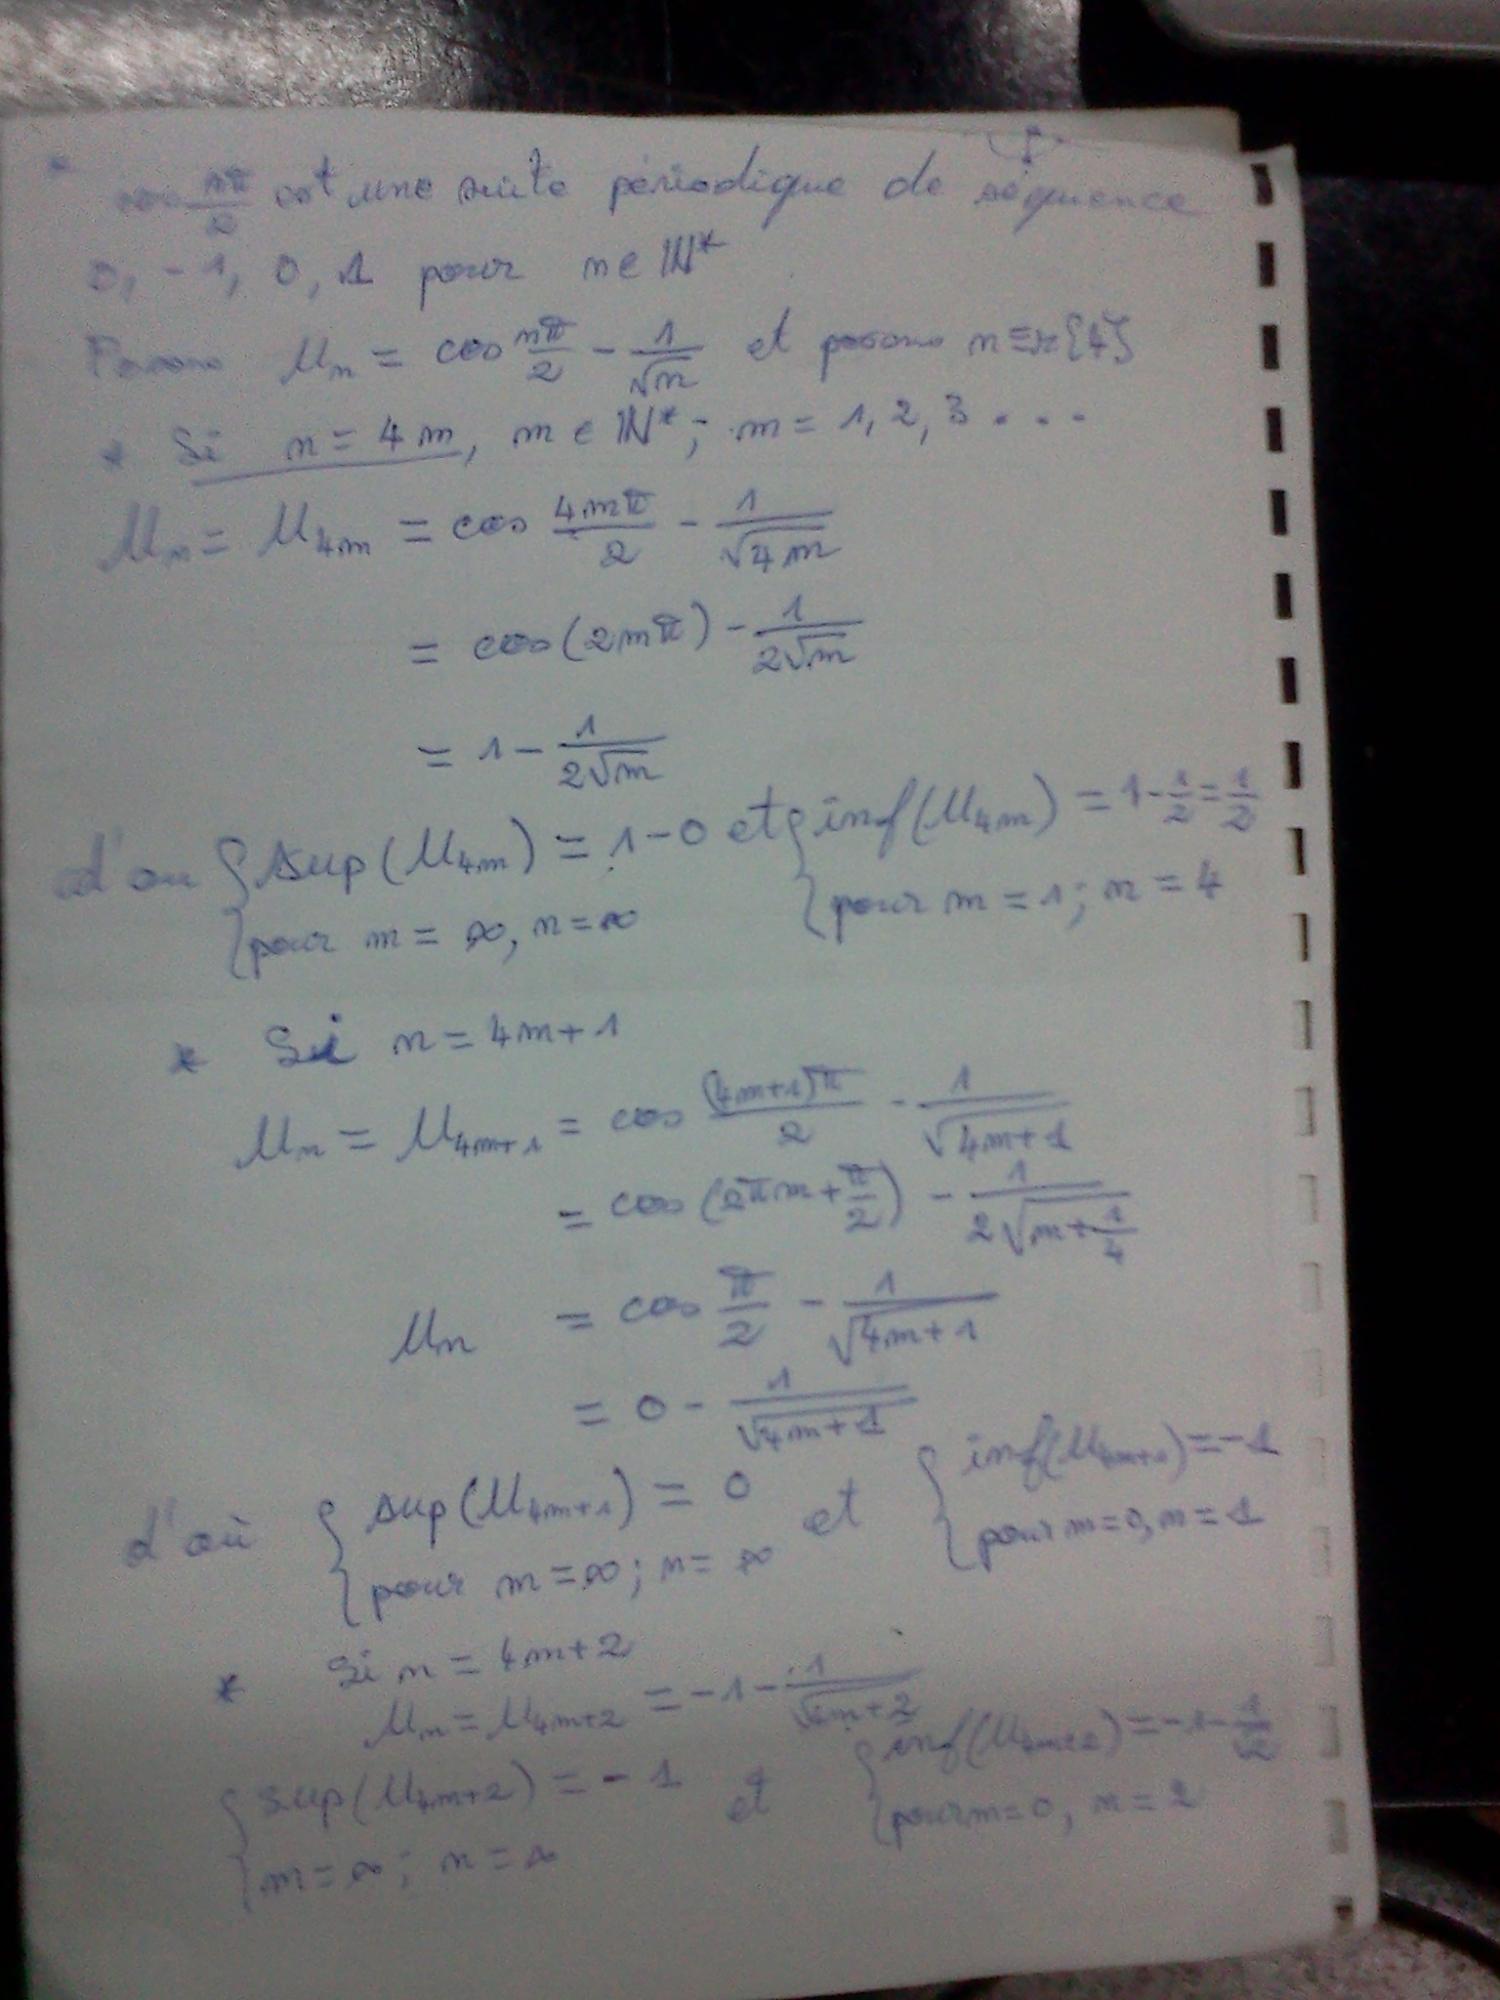 * cos nπ/2 est une suite périodique de séquence
0, -1, 0, 1 pour n ∈ ℕ*
Posons Un = cos nπ/2 - 1/√n et posons n ≡ r{4}
* Si n = 4m, m ∈ ℕ*; m = 1, 2, 3 . . .
Un = U4m = cos 4mπ/2 - 1/√4m
= cos(2mπ) - 1/2√m
= 1 - 1/2√m
d'où { sup(U4m) = 1 - 0 et { inf(U4m) = 1 - 1/2 = 1/2
pour m = ∞, n = ∞ pour m = 1; n = 4
* Si n = 4m+1
Un = U4m+1 = cos (4m+1)π/2 - 1/√4m+1
= cos (2πm + π/2) - 1/2√m+1/4
Un = cos π/2 - 1/√4m+1
= 0 - 1/√4m+1
d'où { sup(U4m+1) = 0 et { inf(U4m+1) = -1
pour m = ∞; n = ∞ pour m = 0, n = 1
* Si n = 4m+2
Un = U4m+2 = -1 - 1/√4m+2
{ sup(U4m+2) = -1 et { inf(U4m+2) = -1 - 1/√2
m = ∞; n = ∞ pour m = 0, n = 2